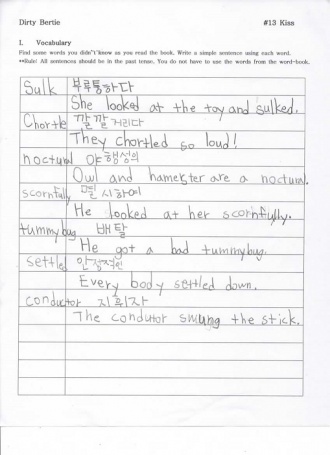 Dirty Bertie #13 Kiss
I. Vocabulary
Find some words you didn't know as you read the book. Write a simple sentence using each word.
**Rule! All sentences should be in the past tense. You do not have to use the words from the word-book.
Sulk 부루퉁하다
She looked at the toy and sulked.
Chortle 깔깔거리다
They chortled so loud!
noctural 야행성의
Owl and hamester are a noctural.
scornfully 멸시하여
He looked at her scornfully.
tummybug 배탈
He got a bad tummybug.
settled 안정적인
Every body settled down.
conductor 지휘자
The condutor swung the stick.